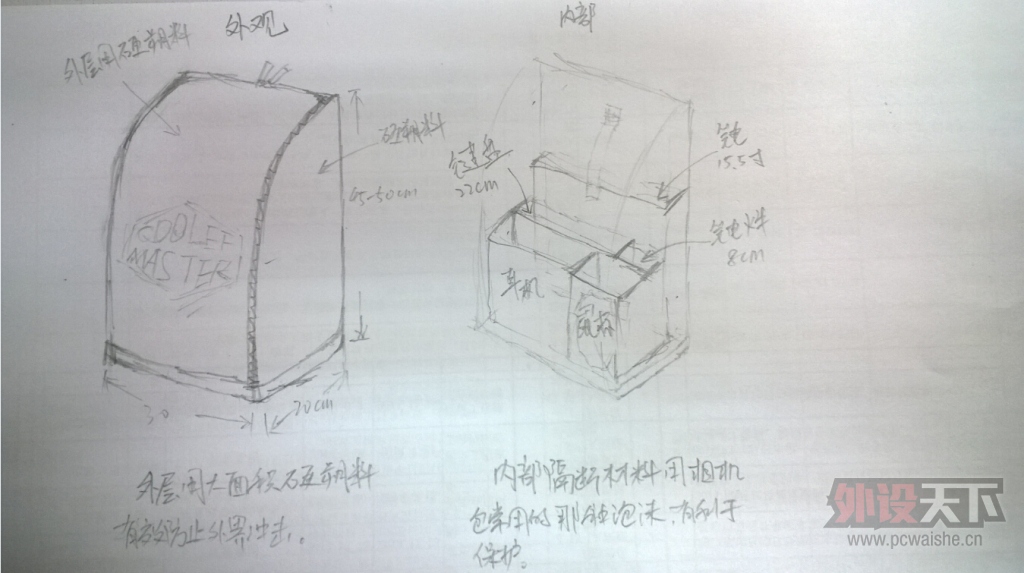 外观
外层用硬塑料
硬塑料
45-50cm
COOLER
MASTER
30
20cm
外层用大面积硬塑料
有效防止外界冲击。
内部
键盘
22cm
15.5寸
8cm
耳机
鼠标
内部隔断材料用相机
包常用的那种泡沫,有利于
保护。
外设天下
www.pcwaishe.cn